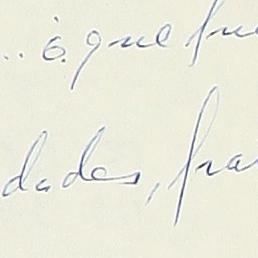 .. é que fue
dades, fra